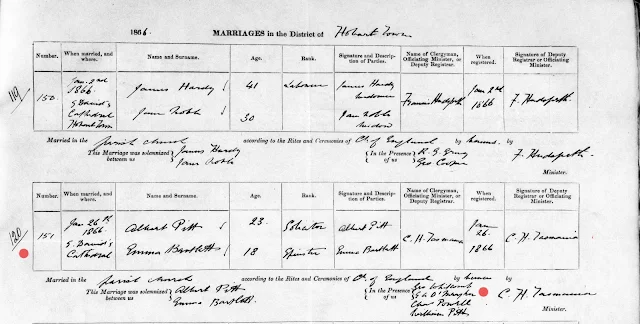 1866. MARRIAGES in the District of Hobart Town
Number. When married, and where. Name and Surname. Age. Rank. Signature and Description of Parties. Name of Clergyman, Officiating Minister, or Deputy Registrar. When registered. Signature of Deputy Registrar or Officiating Minister.
119
150 Jan. 2nd 1866 St David's Cathedral Hobart Town
James Hardy 41 Labourer James Hardy widower
Jane Noble 30 Jane Noble widow
Francis Hudspeth Jan 2nd 1866 F. Hudspeth
Married in the parish church according to the Rites and Ceremonies of Ch. of England by
This Marriage was solemnized between us James Hardy Jane Noble
In the Presence of us Geo Cooper
F. Hudspeth.
Minister.
Number. When married, and where. Name and Surname. Age. Rank. Signature and Description of Parties. Name of Clergyman, Officiating Minister, or Deputy Registrar. When registered. Signature of Deputy Registrar or Officiating Minister.
120
151 Jan 26th 1866. St David's Cathedral
Albert Pitt 23. Solicitor Albert Pitt
Emma Bartlett 18 Spinster Emma Bartlett
C. H. Tasmania Jan 26 1866 C. H. Tasmania
Married in the parish church according to the Rites and Ceremonies of Ch. of England by license
This Marriage was solemnized between us Albert Pitt Emma Bartlett.
In the Presence of us Geo Whitcomb
Chas Powell
Pitt
C. H. Tasmania
Minister.